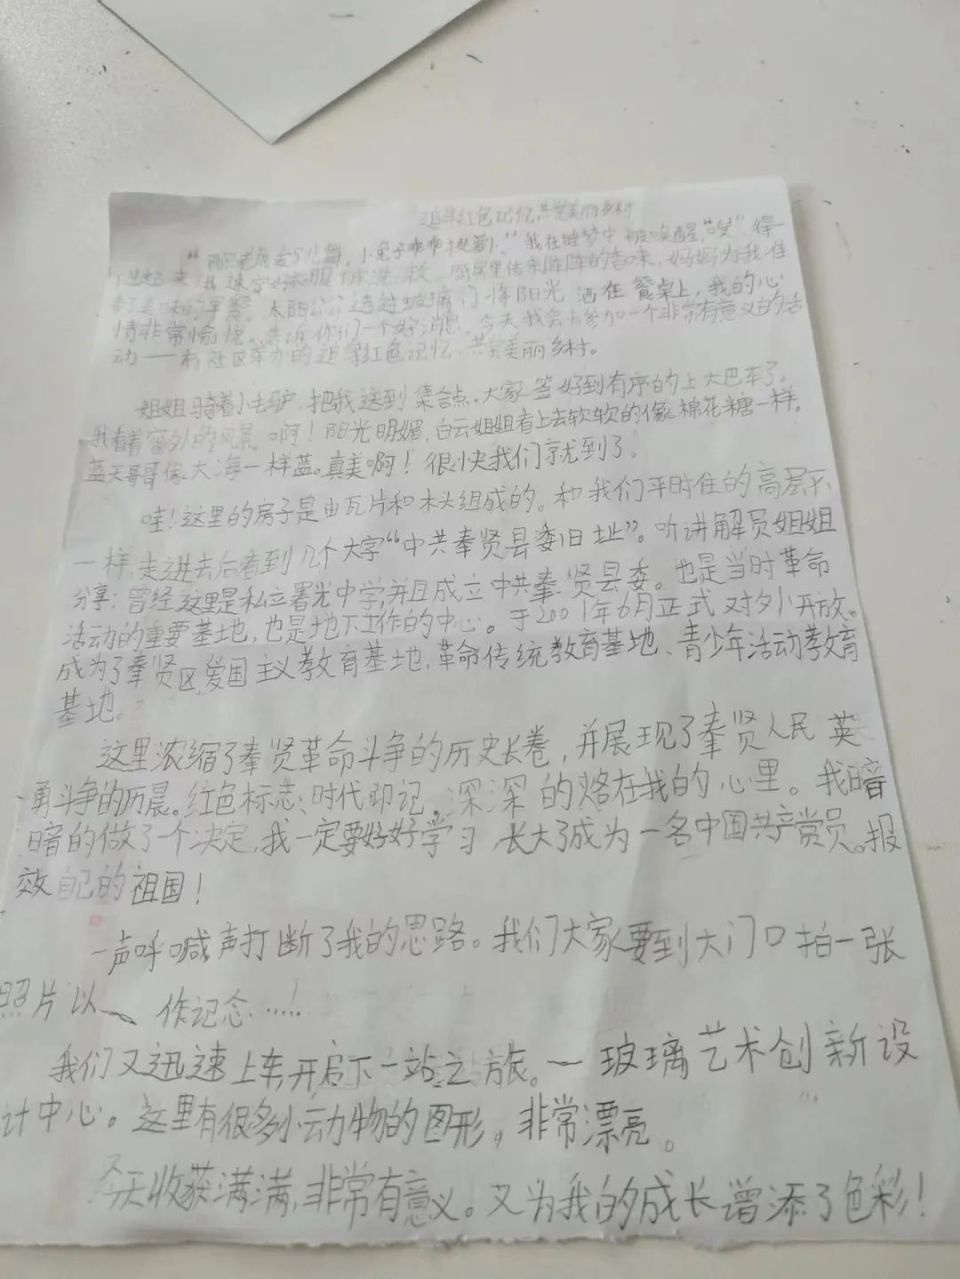 追寻红色记忆 共赏美丽乡村
我在睡梦中被唤醒"哎"得一
厨房里传来阵阵的香味,妈妈为我准
太阳公公透过玻璃门将阳光洒在餐桌上,我的心
情非常愉悦。告诉你们一个好消息,今天我会去参加一个非常有意义的活
动——村社区举办的追寻红色记忆、共赏美丽乡村。
姐姐骑着小毛驴,把我送到集合点。大家签好到有序的上大巴车了。
我看着窗外的风景。啊!阳光明媚,白云姐姐看上去软软的像棉花糖一样。
蓝天哥哥像大海一样蓝。真美啊!很快我们就到了。
哇!这里的房子是由瓦片和木头组成的。和我们平时住的高层不
一样,走进去后看到几个大字"中共奉贤县委旧址"。听讲解员姐姐
分享:曾经这里是私立曙光中学,并且成立中共奉贤县委。也是当时革命
活动的重要基地,也是地下工作的中心。于2001年6月正式对外开放。
成为了奉贤区爱国主义教育基地、革命传统教育基地、青少年活动教育
基地。
这里浓缩了奉贤革命斗争的历史长卷,并展现了奉贤人民英
勇斗争的历晨。红色标志、时代印记,深深的烙在我的心里。我暗
暗的做了个决定,我一定要好好学习,长大了成为一名中国共产党员。报
效自己的祖国!
一声呼喊声打断了我的思路。我们大家要到大门口拍一张
照片以 作记念……!
我们又迅速上车开启下一站之旅。一玻璃艺术创新设
计中心。这里有很多小动物的图形,非常漂亮。
今天收获满满,非常有意义。又为我的成长增添了色彩!